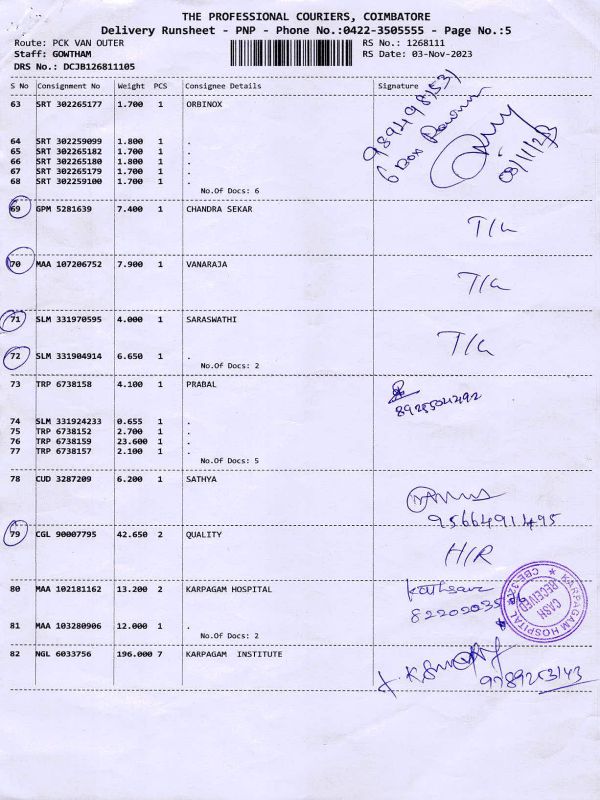 THE PROFESSIONAL COURIERS, COIMBATORE
Delivery Runsheet - PNP - Phone No.:0422-3505555 - Page No.:5
Route: PCK VAN OUTER RS No.: 1268111
Staff: GOWTHAM RS Date: 03-Nov-2023
DRS No.: DCJB126811105
S No Consignment No Weight PCS Consignee Details Signature
63 SRT 302265177 1.700 1 ORBINOX
64 SRT 302259099 1.800 1 .
65 SRT 302265182 1.700 1 .
66 SRT 302265180 1.800 1 .
67 SRT 302265179 1.700 1 .
68 SRT 302259100 1.700 1 .
No.Of Docs: 6
69 GPM 5281639 7.400 1 CHANDRA SEKAR
T/L
70 MAA 107206752 7.900 1 VANARAJA
T/L
71 SLM 331970595 4.000 1 SARASWATHI
T/L
72 SLM 331904914 6.650 1 .
No.Of Docs: 2
73 TRP 6738158 4.100 1 PRABAL
74 SLM 331924233 0.655 1 .
75 TRP 6738152 2.700 1 .
76 TRP 6738159 23.600 1 .
77 TRP 6738157 2.100 1 .
No.Of Docs: 5
78 CUD 3287209 6.200 1 SATHYA
9566491495
79 CGL 90007795 42.650 2 QUALITY
H/R
80 MAA 102181162 13.200 2 KARPAGAM HOSPITAL
KARPAGAM HOSPITAL
CASH
RECEIVED
81 MAA 103280906 12.000 1 .
No.Of Docs: 2
82 NGL 6033756 196.000 7 KARPAGAM INSTITUTE
9789253143